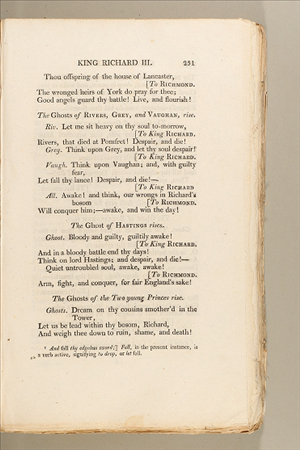 KING RICHARD III. 251
Thou offspring of the house of Lancaster,
[To RICHMOND.
The wronged heirs of York do pray for thee;
Good angels guard thy battle! Live, and flourish!
The Ghosts of RIVERS, GREY, and VAUGHAN, rise.
Riv. Let me sit heavy on thy soul to-morrow,
[To KING RICHARD.
Rivers, that died at Pomfret! Despair, and die!
Grey. Think upon Grey, and let thy soul despair!
[To KING RICHARD.
Vaugh. Think upon Vaughan; and, with guilty
fear,
Let fall thy lance! Despair, and die!—
[To King RICHARD
All. Awake! and think, our wrongs in Richard's
bosom [To RICHMOND.
Will conquer him;—awake, and win the day!
The Ghost of HASTINGS rises.
Ghost. Bloody and guilty, guiltily awake!
[To KING RICHARD.
And in a bloody battle end thy days!
Think on lord Hastings; and despair, and die!—
Quiet untroubled soul, awake, awake!
[To RICHMOND.
Arm, fight, and conquer, for fair England's sake!
The Ghosts of the Two young Princes rise.
Ghosts. Dream on thy cousins smother'd in the
Tower,
Let us be lead within thy bosom, Richard,
And weigh thee down to ruin, shame, and death!
And fall thy edgeless sword;] Fall, in the present instance, is
a verb active, signifying to drop, or let fall.